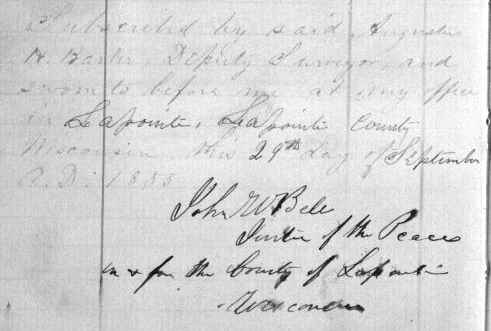 Subscribed by said Augustus
H. Barber, Deputy Surveyor, and
sworn to before me at my office
in Lapointe, Lapointe County
Wisconsin this 29th day of September
A.D. 1855
John W Bell
Justice of the Peace
in & for the County of Lapointe
Wisconsin